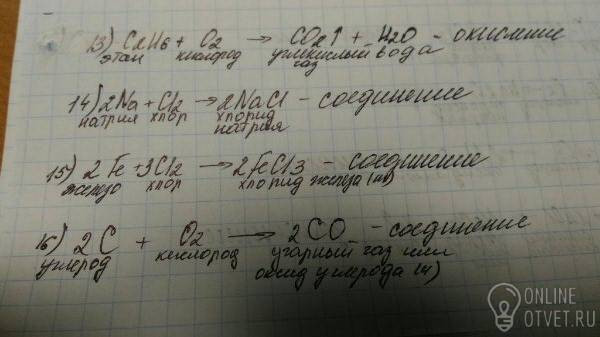 13) C2H6 + O2 → CO2↑ + H2O - окисление
этан кислород углекислый вода
газ
14) 2Na + Cl2 → 2NaCl - соединение
натрия хлор хлорид
натрия
15) 2Fe + 3Cl2 → 2FeCl3 - соединение
железо хлор хлорид железа (III)
16) 2C + O2 → 2CO - соединение
углерод кислород угарный газ или
оксид углерода (II)
ONLINE
OTVET.RU